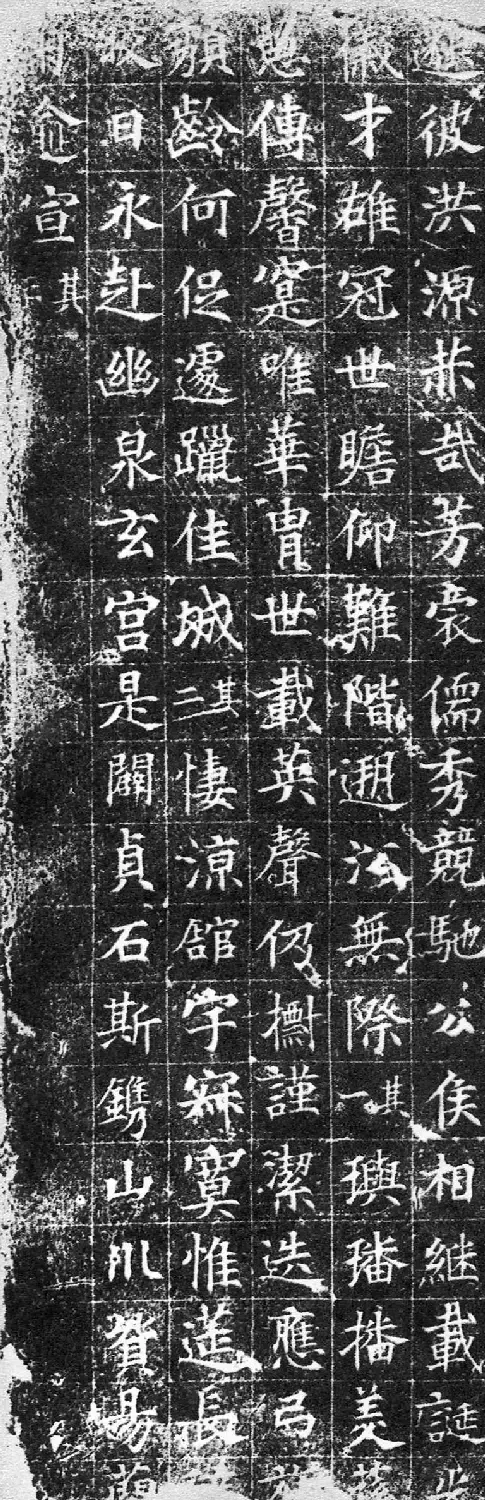 彼洪源恭哉芳裔儒秀競馳公侯相繼載誕
徽才雄冠世瞻仰難階遡㳂無際其一璵璠播美
傳馨寔唯華冑世載英聲仍擕謹潔迭應弓
頹齡何促遽躐佳城其二悽涼舘宇寂寞惟莚長
日永赴幽泉玄宫是闢貞石斯鐫山川貿易
僉宣其三